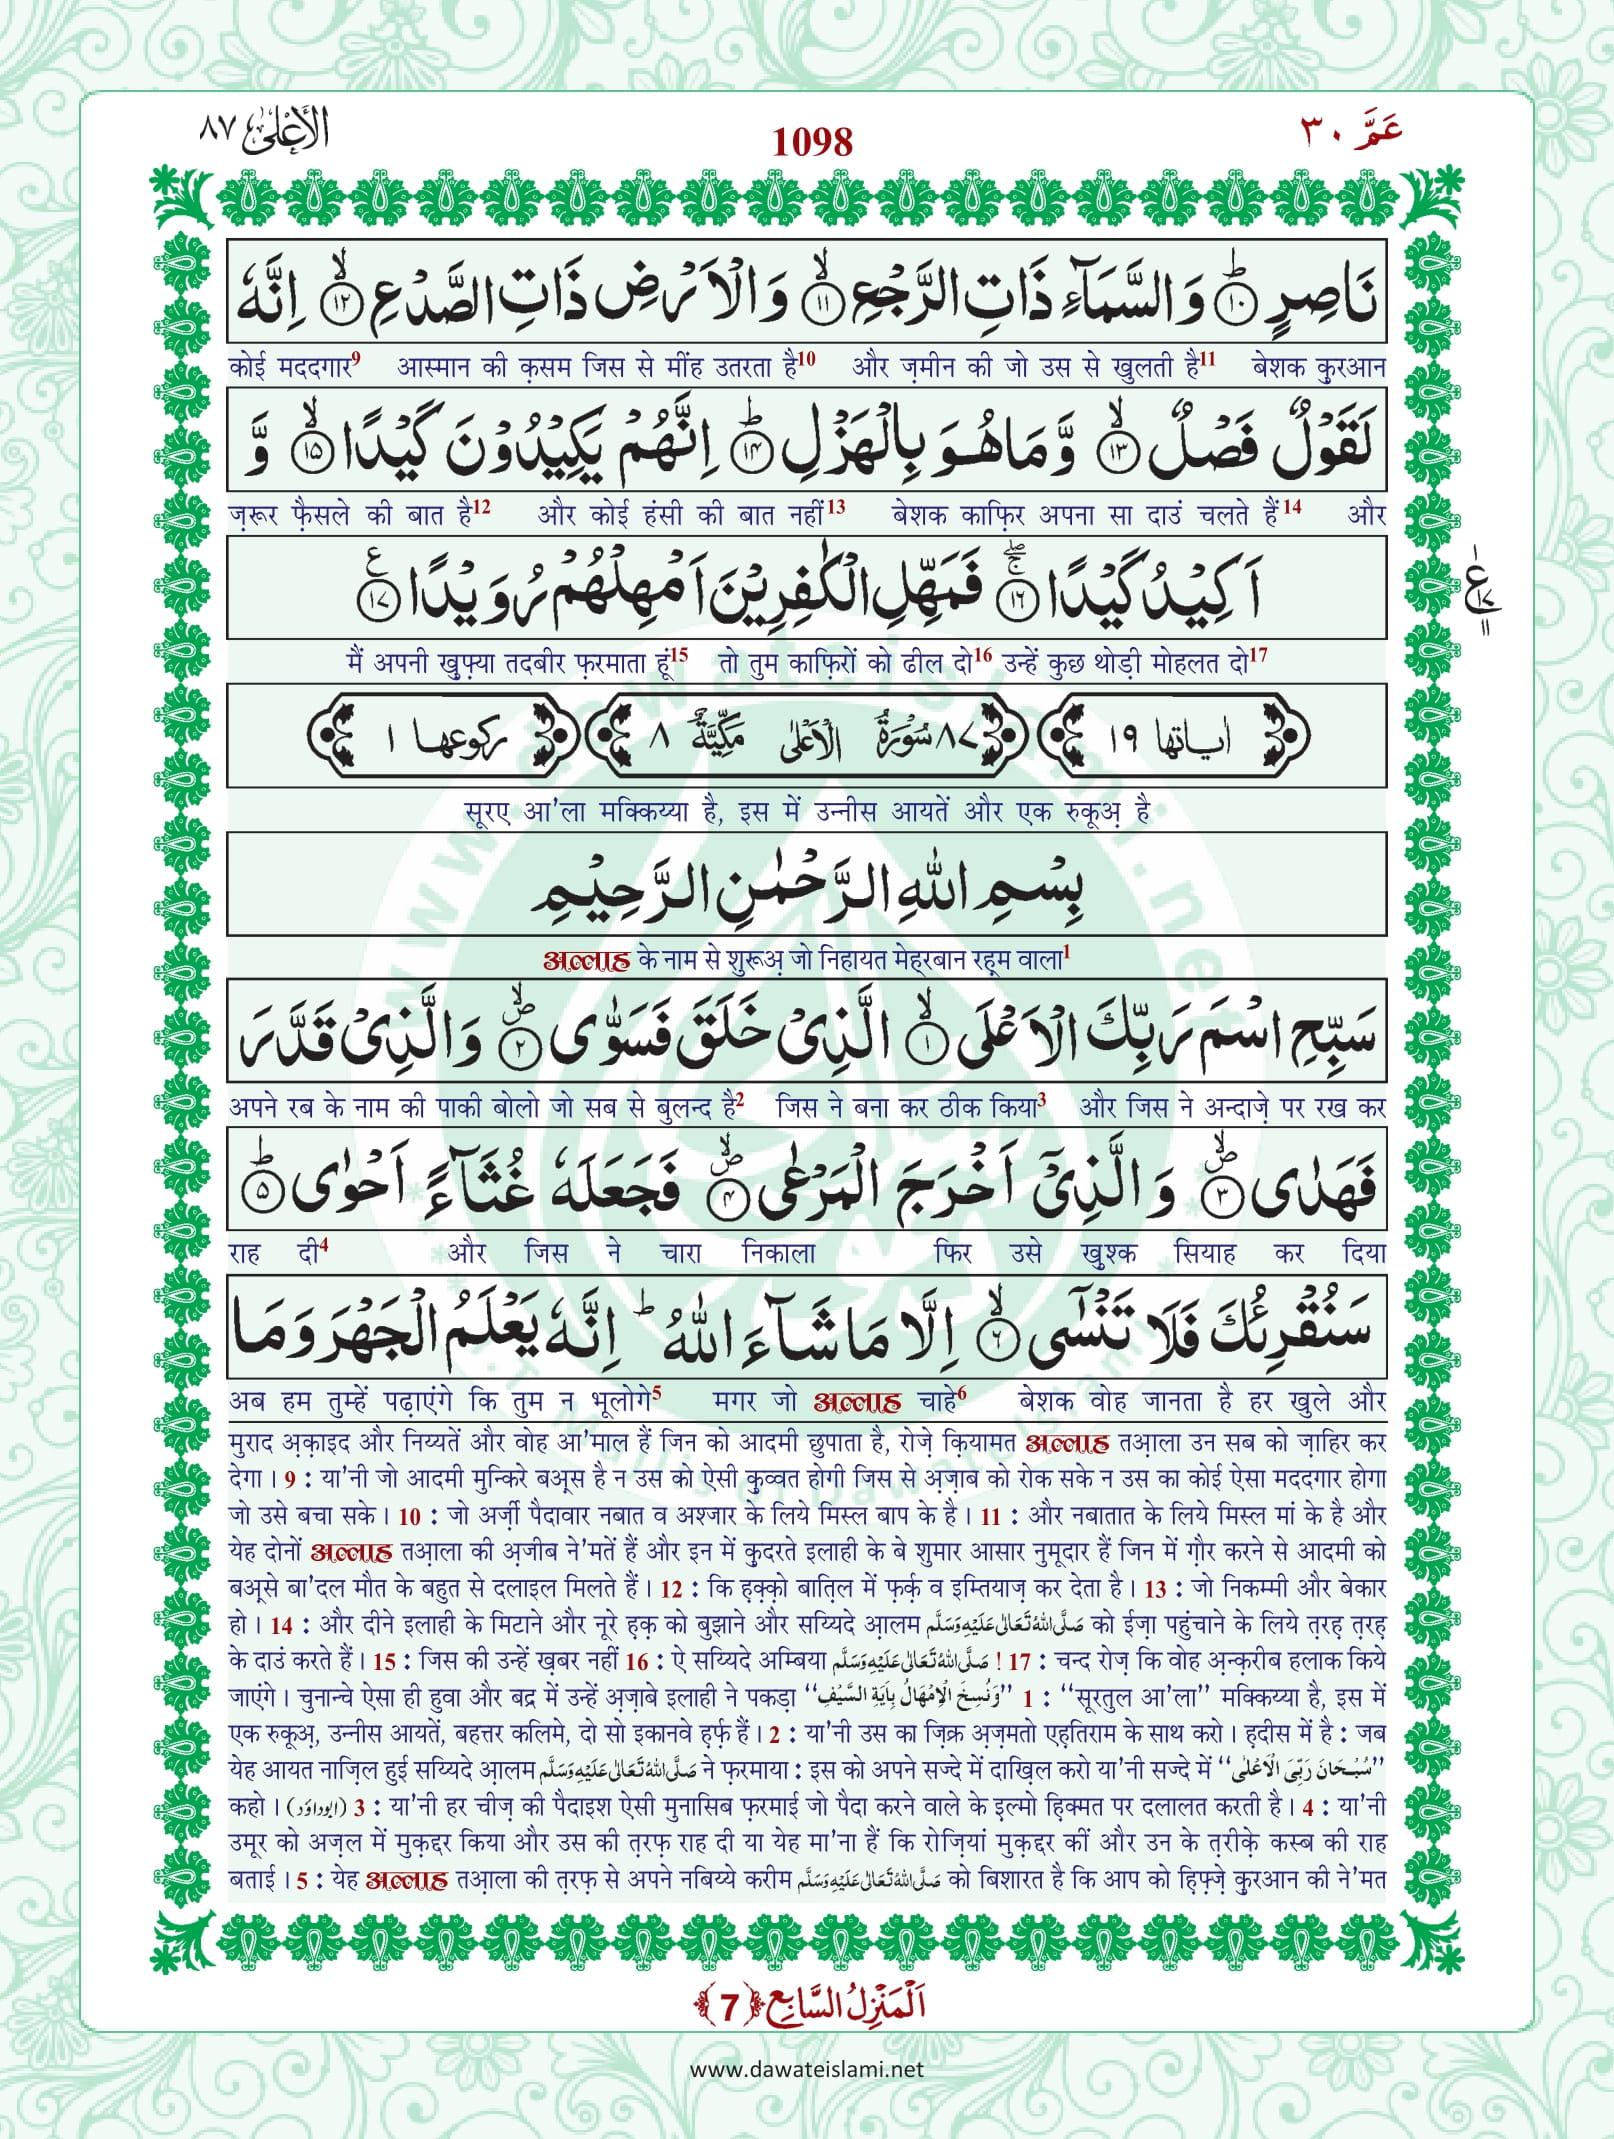 الأعلى ٨٧
1098
عَمَّ ٣٠
نَاصِرٍ ۱۰ وَالسَّمَآءِ ذَاتِ الرَّجْعِ ۱۱ وَالْاَرْضِ ذَاتِ الصَّدْعِ ۱۲ اِنَّهٗ
कोई मददगार9 आस्मान की क़सम जिस से मींह उतरता है10 और ज़मीन की जो उस से खुलती है11 बेशक कुरआन
لَقَوْلٌ فَصْلٌ ۱۳ وَّمَا هُوَ بِالْهَزْلِ ۱۴ اِنَّهُمْ یَكِیْدُوْنَ كَیْدًا ۱۵ وَّ
ज़रूर फ़ैसले की बात है12 और कोई हंसी की बात नहीं13 बेशक काफ़िर अपना सा दाउं चलते हैं14 और
اَكِیْدُ كَیْدًا ۱۶ فَمَهِّلِ الْكٰفِرِیْنَ اَمْهِلْهُمْ رُوَیْدًا ۱۷
मैं अपनी खुफ़्या तदबीर फ़रमाता हूं15 तो तुम काफ़िरों को ढील दो16 उन्हें कुछ थोड़ी मोहलत दो17
اٰیاتها ۱۹ ۸۷ سُوْرَةُ الْاَعْلٰی مَكِّیَّةٌ ۸ ركوعها ۱
सूरए आ'ला मक्किय्या है, इस में उन्नीस आयतें और एक रुकूअ़ है
بِسْمِ اللّٰهِ الرَّحْمٰنِ الرَّحِیْمِ
अल्लाह के नाम से शुरूअ़ जो निहायत मेह्रबान रह़म वाला1
سَبِّحِ اسْمَ رَبِّكَ الْاَعْلَى ۱ الَّذِیْ خَلَقَ فَسَوّٰى ۲ وَالَّذِیْ قَدَّرَ
अपने रब के नाम की पाकी बोलो जो सब से बुलन्द है2 जिस ने बना कर ठीक किया3 और जिस ने अन्दाज़े पर रख कर
فَهَدٰى ۳ وَالَّذِیْۤ اَخْرَجَ الْمَرْعٰى ۴ فَجَعَلَهٗ غُثَآءً اَحْوٰى ۵
राह दी4 और जिस ने चारा निकाला फिर उसे खुश्क सियाह कर दिया
سَنُقْرِئُكَ فَلَا تَنْسٰۤى ۶ اِلَّا مَا شَآءَ اللّٰهُ ؕ اِنَّهٗ یَعْلَمُ الْجَهْرَ وَمَا
अब हम तुम्हें पढ़ाएंगे कि तुम न भूलोगे5 मगर जो अल्लाह चाहे6 बेशक वोह जानता है हर खुले और
मुराद अ़क़ाइद और निय्यतें और वोह आ'माल हैं जिन को आदमी छुपाता है, रोज़े क़ियामत अल्लाह तआ़ला उन सब को ज़ाहिर कर
देगा । 9 : या'नी जो आदमी मुन्किरे बअ़्स है न उस को ऐसी कुव्वत होगी जिस से अ़ज़ाब को रोक सके न उस का कोई ऐसा मददगार होगा
जो उसे बचा सके । 10 : जो अर्ज़ी पैदावार नबात व अश्जार के लिये मिस्ल बाप के है । 11 : और नबातात के लिये मिस्ल मां के है और
येह दोनों अल्लाह तआ़ला की अ़जीब ने'मतें हैं और इन में कुदरते इलाही के बे शुमार आसार नुमूदार हैं जिन में ग़ौर करने से आदमी को
बअ़्से बा'दल मौत के बहुत से दलाइल मिलते हैं । 12 : कि ह़क़्को बात़िल में फ़र्क़ व इम्तियाज़ कर देता है । 13 : जो निकम्मी और बेकार
हो । 14 : और दीने इलाही के मिटाने और नूरे ह़क़ को बुझाने और सय्यिदे आ़लम صَلَّى اللهُ تَعَالٰى عَلَيْهِ وَسَلَّم को ईज़ा पहुंचाने के लिये त़रह़ त़रह़
के दाउं करते हैं । 15 : जिस की उन्हें ख़बर नहीं 16 : ऐ सय्यिदे अम्बिया صَلَّى اللهُ تَعَالٰى عَلَيْهِ وَسَلَّم ! 17 : चन्द रोज़ कि वोह अ़न्क़रीब हलाक किये
जाएंगे । चुनान्चे ऐसा ही हुवा और बद्र में उन्हें अ़ज़ाबे इलाही ने पकड़ा ‘‘وَنُسِخَ الْاِمْهَالُ بِاٰيَةِ السَّيْفِ’’ 1 : ‘‘सूरतुल आ'ला’’ मक्किय्या है, इस में
एक रुकूअ़, उन्नीस आयतें, बहत्तर कलिमे, दो सो इकानवे ह़र्फ़ हैं । 2 : या'नी उस का ज़िक्र अ़ज़मतो एह़तिराम के साथ करो । ह़दीस में है : जब
येह आयत नाज़िल हुई सय्यिदे आ़लम صَلَّى اللهُ تَعَالٰى عَلَيْهِ وَسَلَّم ने फ़रमाया : इस को अपने सज्दे में दाख़िल करो या'नी सज्दे में ‘‘سُبْحَانَ رَبِّىَ الْاَعْلٰى’’
कहो । (ابوداؤد) 3 : या'नी हर चीज़ की पैदाइश ऐसी मुनासिब फ़रमाई जो पैदा करने वाले के इल्मो ह़िक्मत पर दलालत करती है । 4 : या'नी
उमूर को अज़ल में मुक़द्दर किया और उस की त़रफ़ राह दी या येह मा'ना हैं कि रोज़ियां मुक़द्दर कीं और उन के त़रीक़े कस्ब की राह
बताई । 5 : येह अल्लाह तआ़ला की त़रफ़ से अपने नबिय्ये करीम صَلَّى اللهُ تَعَالٰى عَلَيْهِ وَسَلَّم को बिशारत है कि आप को ह़िफ़्ज़े कुरआन की ने'मत
اَلْمَنْزِلُ السَّابِع ﴿7﴾
www.dawateislami.net